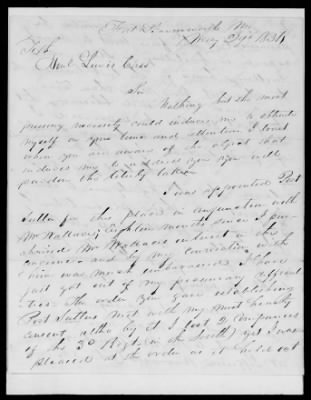 Fort Leavenworth Mo
May 29th 1834
To the
Honl Lewis Cass
Sir
Nothing but the most
pressing necessity could induce me to obtrude
myself on your time and attention I trust
when you are aware of the object that
induces me to address you you will
pardon the liberty taken
I was appointed Post
Sutler for this place in conjunction with
Mr Wallace, Eighteen months since I pur-
chased Mr Wallaces interest in the
concern and by my connection with
him was much embarrassed I have
just got out of my pecuniary difficul
ties. The order you gave establishing
Post Sutlers met with my most hearty
consent altho by it I lost 2 companies
of the 3d Regt (in the South) yet I was
pleased at the order as it held out